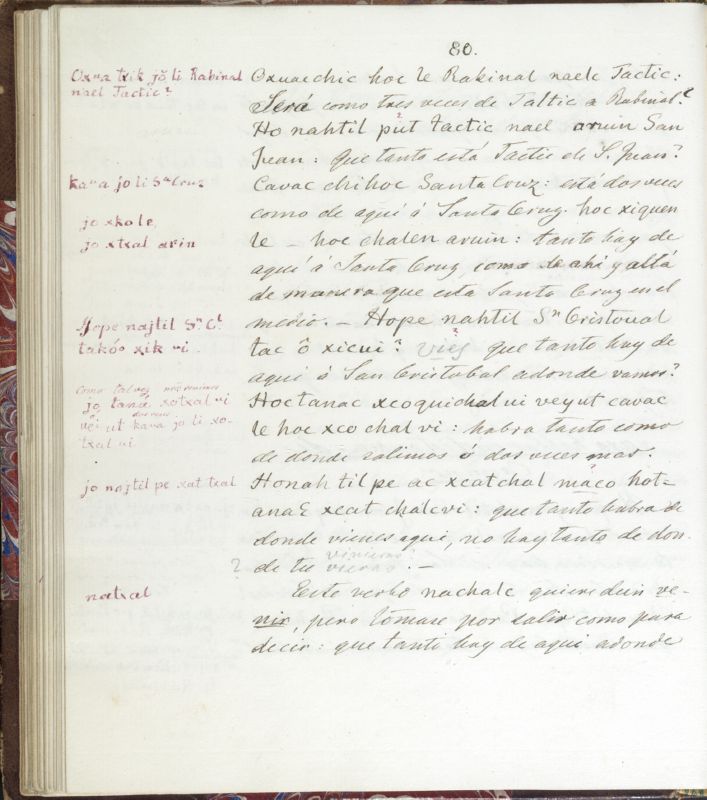 80.
Oxua txik jŏ li Rabinal
nael Tactic?
Oxuaechic hoc le Rakinal naelc Tactic:
Será como tres veces de Taltic a Rabinal?
Ho nahtil put tactic nael aruin San
Juan: que tanto está Tactic de S. Juan?
kaua jo li Sta Cruz
Cavac chihoc Santa Cruz: está dos veces
jo xkole,
como de aqui á Santa Cruz. hoc xiquen
jo xtxal arin
le – hoc chalen aruin: tanto hay de
aquí á Santa Cruz como de ahí y allá
de manera que esta Santa Cruz en el
Jope najtil Sn Ct
medio. – Hope nahtil Sn Cristoual
takóo xik vi.
tac ô xicui? vies que tanto hay de
aqui á San Cristobal adonde vamos?
como talvez
jo tana xotxal vi
Hoctanac xcoquichal ui veyut cavac
ve ut kaua jo li xo-
le hoc xco chal vi: habra tanto como
txal vi
de donde salimos ó dos veces mas.
jo najtil pe xat txal
Honah til pe ac xcatchal maco hot=
anaξ xcat chalcvi: que tanto habra de
donde vienes aqui, no hay tanto de don-
vinieras
? de tu vieras. –
natxal
Este verbo nachalc quiere decir ve-
nir, pero tómase por salir como para
decir: que tanto hay de aqui adonde